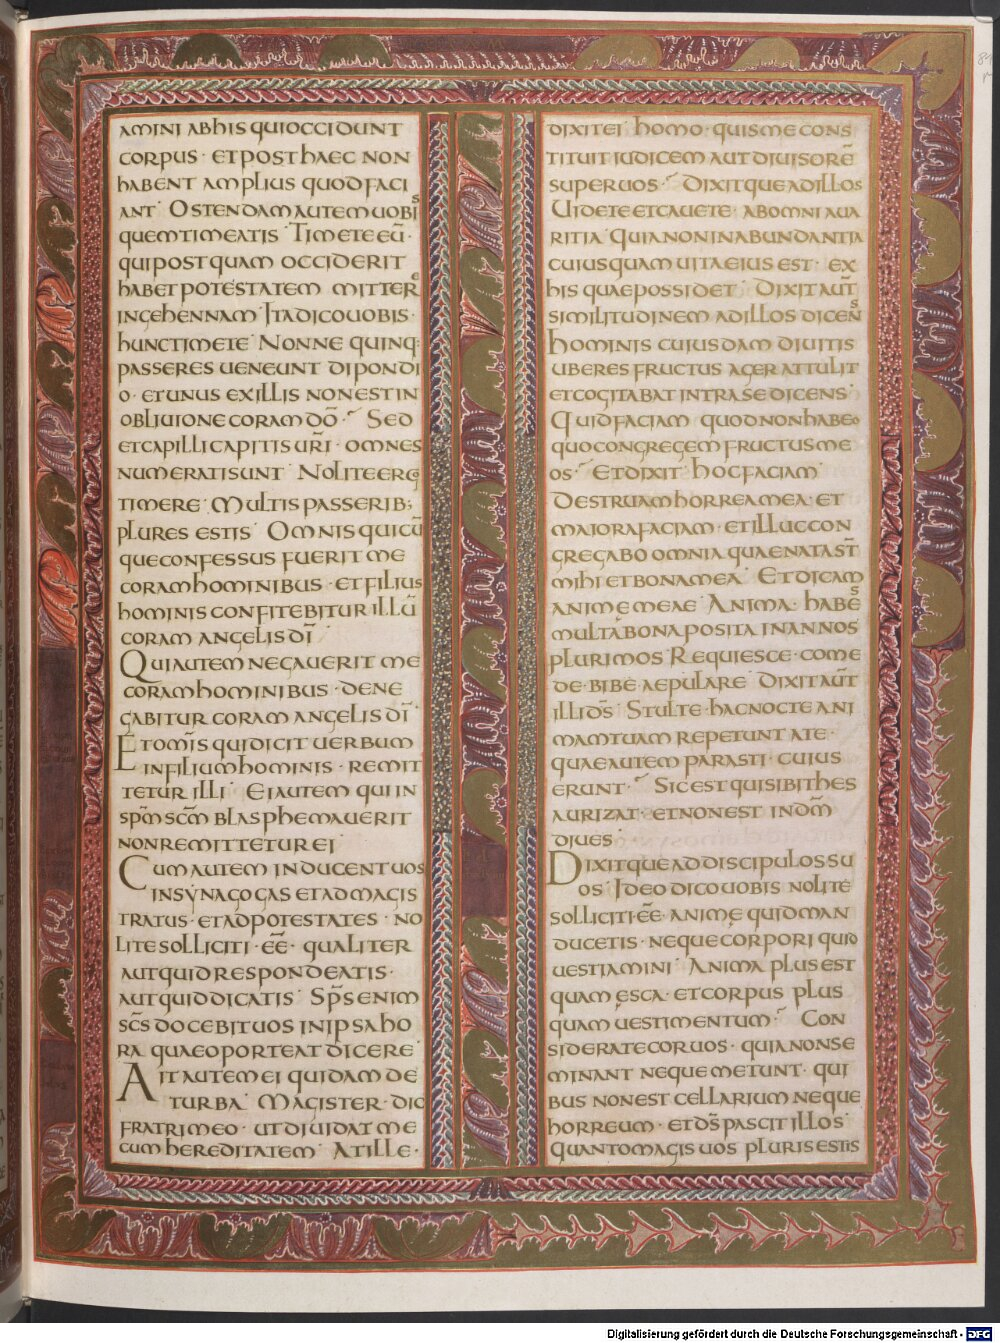 AMINI ABHIS QUIOCCIDUNT
CORPUS · ETPOSTHAEC NON
HABENT AMPLIUS QUODFACI
ANT · OSTENDAM AUTEM UOBIS
QUEMTIMEATIS · TIMETE EŪ ·
QUIPOSTQUAM OCCIDERIT
HABETPOTESTATEM MITTERE
INGEHENNAM · ITADICOUOBIS ·
HUNCTIMETE · NONNE QUINQ·
PASSERES UENEUNT DIPONDI
O · ETUNUS EXILLIS NONESTIN
OBLIUIONE CORAM DŌ · SED
ETCAPILLICAPITIS URĪ · OMNES
NUMERATISUNT · NOLITEERGO
TIMERE · MULTIS PASSERIB;
PLURES ESTIS · OMNIS QUICŪ
QUECONFESSUS FUERIT ME
CORAMHOMINIBUS · ETFILIUS
HOMINIS CONFITEBITUR ILLŪ
CORAM ANGELIS DĪ
QUIAUTEM NEGAUERIT ME
CORAMHOMINIBUS · DENE
GABITUR CORAM ANGELIS DĪ
ETOMĪS QUIDICIT UERBUM
INFILIUMHOMINIS · REMIT
TETUR ILLI · EIAUTEM QUI IN
SPM̄ SCM̄ BLASPHEMAUERIT
NONREMITTETUR EI
CUMAUTEM INDUCENTUOS
INSYNAGOGAS ETADMAGIS
TRATUS · ETADPOTESTATES · NO
LITESOLLICITI · EĒ · QUALITER
AUTQUIDRESPONDEATIS ·
AUTQUIDDICATIS · SPS̄ ENIM
SCS̄ DOCEBITUOS INIPSAHO
RA QUAEOPORTEAT DICERE
AITAUTEM EI QUIDAM DE
TURBA · MAGISTER · DIC
FRATRIMEO · UTDIUIDAT ME
CUM HEREDITATEM · ATILLE ·
DIXITEI · HOMO · QUISME CONS
TITUIT IUDICEM AUT DIUISORĒ
SUPERUOS · DIXITQUEADILLOS
UIDETE ETCAUETE · ABOMNI AUA
RITIA · QUIANONINABUNDANTIA
CUIUSQUAM UITAEIUS EST · EX
HIS QUAEPOSSIDET · DIXIT AUT̄
SIMILITUDINEM ADILLOS DICENS
HOMINIS CUIUSDAM DIUITIS
UBERES FRUCTUS AGER ATTULIT
ETCOGITABAT INTRASE DICENS ·
QUIDFACIAM · QUODNONHABEO
QUOCONGREGEM FRUCTUSME
OS · ETDIXIT · HOCFACIAM
DESTRUAMHORREAMEA · ET
MAIORAFACIAM · ETILLUCCON
GREGABO OMNIA QUAENATAST̄
MIHI ETBONAMEA · ETDICAM
ANIMĘ MEAE · ANIMA · HABES
MULTABONAPOSITA INANNOS
PLURIMOS · REQUIESCE · COME
DE · BIBE AEPULARE · DIXIT AUT̄
ILLI DS̄ · STULTE · HACNOCTE ANI
MAMTUAM REPETUNT ATE ·
QUAEAUTEM PARASTI · CUIUS
ERUNT · SICEST QUISIBITHES
AURIZAT · ETNONEST INDM̄
DIUES ·
DIXITQUEADDISCIPULOSSU
OS · IDEO DICOUOBIS · NOLITE
SOLLICITI · EĒ · ANIMĘ QUIDMAN
DUCETIS · NEQUECORPORI QUID
UESTIAMINI · ANIMA PLUS EST
QUAM ESCA · ETCORPUS PLUS
QUAM UESTIMENTUM · CON
SIDERATECORUOS · QUIANONSE
MINANT NEQUE METUNT · QUI
BUS NONEST CELLARIUM NEQUE
HORREUM · ETDS̄ PASCIT ILLOS ·
QUANTOMAGIS UOS PLURIS ESTIS
Digitalisierung gefördert durch die Deutsche Forschungsgemeinschaft - DFG